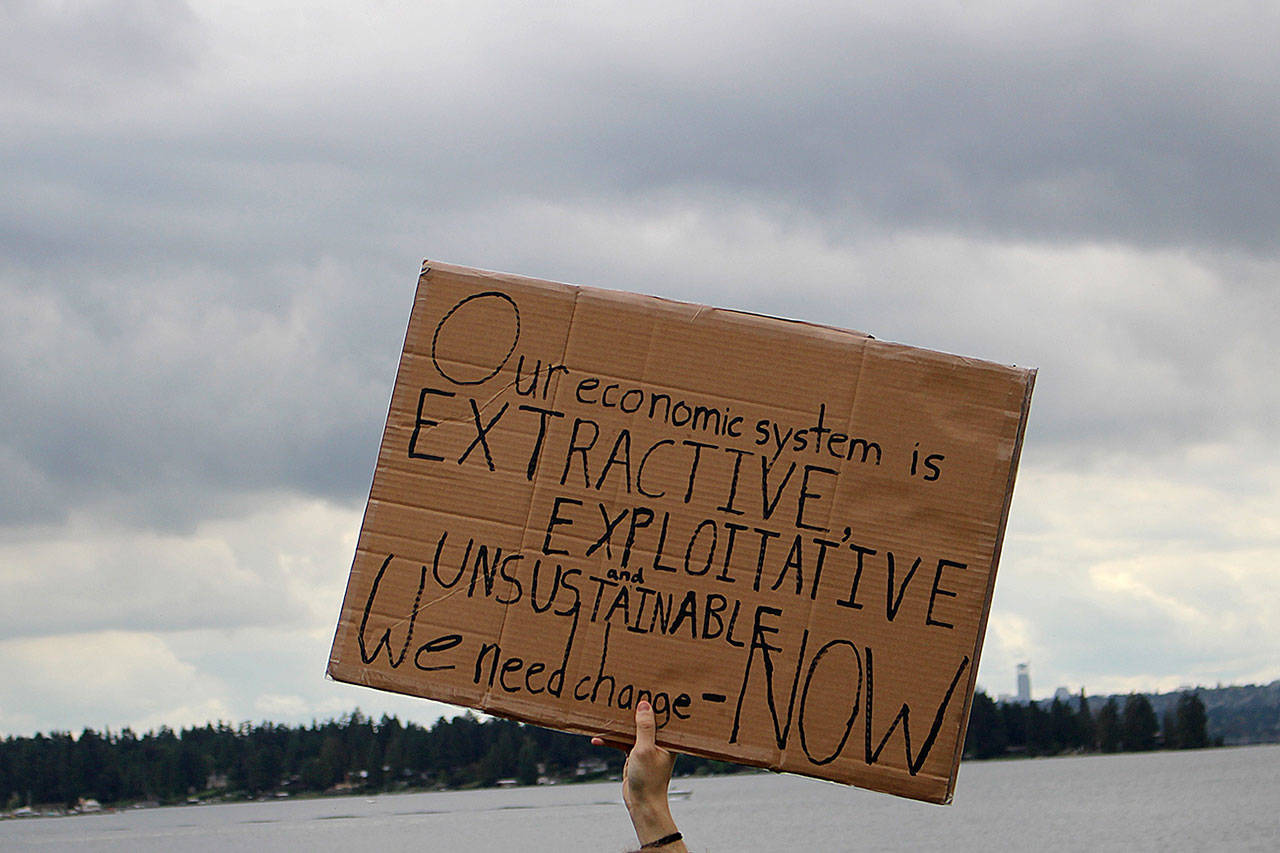 Our economic system is
EXTRACTIVE,
EXPLOITATIVE
and
UNSUSTAINABLE
We need change - NOW